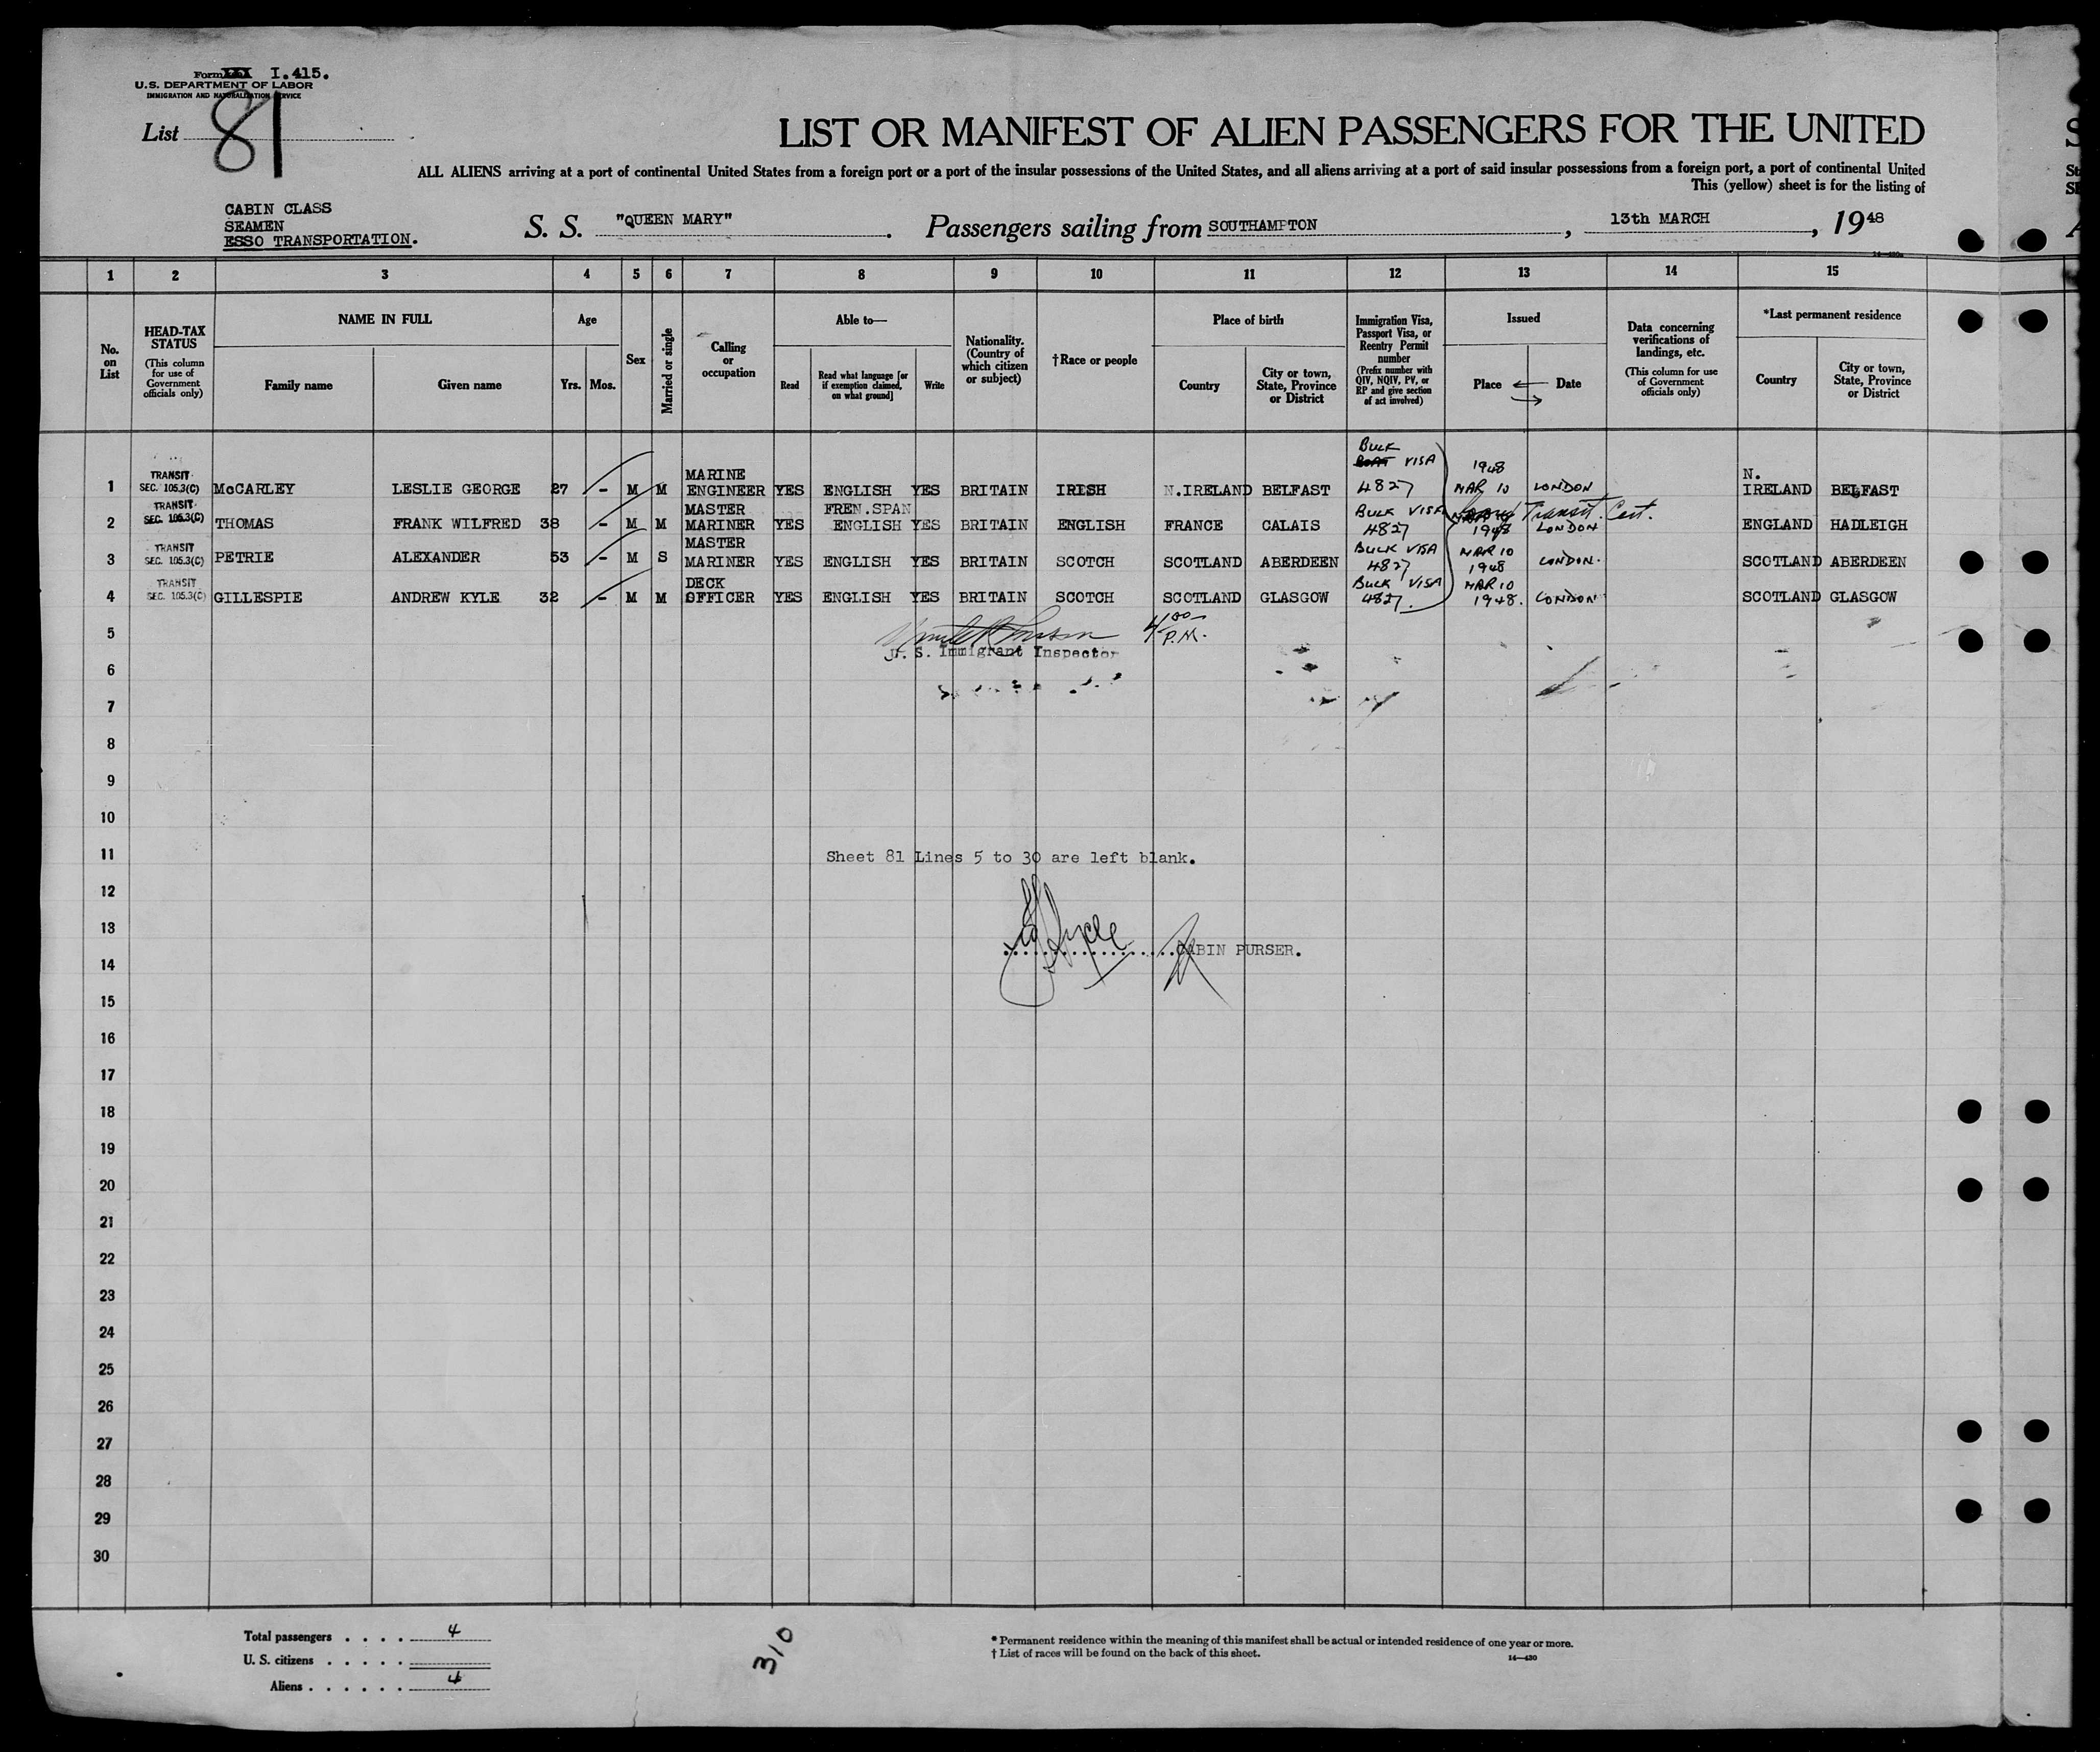 Form I.415.
U.S. DEPARTMENT OF LABOR
IMMIGRATION AND NATURALIZATION SERVICE
List 81
LIST OR MANIFEST OF ALIEN PASSENGERS FOR THE UNITED
ALL ALIENS arriving at a port of continental United States from a foreign port or a port of the insular possessions of the United States, and all aliens arriving at a port of said insular possessions from a foreign port, a port of continental United
This (yellow) sheet is for the listing of
CABIN CLASS
SEAMEN
ESSO TRANSPORTATION.
S. S. "QUEEN MARY". Passengers sailing from SOUTHAMPTON, 13th MARCH, 1948
1 2 3 4 5 6 7 8 9 10 11 12 13 14 15
No. on List
HEAD-TAX STATUS
(This column for use of Government officials only)
NAME IN FULL
Family name Given name
Age
Yrs. Mos.
Sex
Married or single
Calling or occupation
Able to—
Read
Read what language [or if exemption claimed, on what ground]
Write
Nationality. (Country of which citizen or subject)
†Race or people
Place of birth
Country
City or town, State, Province or District
Immigration Visa, Passport Visa, or Reentry Permit number
(Prefix number with QIV, NQIV, PV, or RP and give section of act involved)
Issued
Place Date
Data concerning verifications of landings, etc.
(This column for use of Government officials only)
*Last permanent residence
Country
City or town, State, Province or District
1 TRANSIT SEC. 105.3(C) McCARLEY LESLIE GEORGE 27 - M M MARINE ENGINEER YES ENGLISH YES BRITAIN IRISH N.IRELAND BELFAST BULK BOAT VISA 4827 1948 MAR 10 LONDON N. IRELAND BELFAST
2 TRANSIT SEC. 105.3(C) THOMAS FRANK WILFRED 38 - M M MASTER MARINER YES FREN.SPAN ENGLISH YES BRITAIN ENGLISH FRANCE CALAIS BULK VISA 4827 1948 LONDON Transit. Cert. ENGLAND HADLEIGH
3 TRANSIT SEC. 105.3(C) PETRIE ALEXANDER 53 - M S MASTER MARINER YES ENGLISH YES BRITAIN SCOTCH SCOTLAND ABERDEEN BULK VISA 4827 MAR 10 1948 LONDON. SCOTLAND ABERDEEN
4 TRANSIT SEC. 105.3(C) GILLESPIE ANDREW KYLE 32 - M M DECK OFFICER YES ENGLISH YES BRITAIN SCOTCH SCOTLAND GLASGOW BULK VISA 4827. MAR 10 1948. LONDON SCOTLAND GLASGOW
5
4 00 P.M.
U. S. Immigrant Inspector
6
7
8
9
10
11 Sheet 81 Lines 5 to 30 are left blank.
12
13
CABIN PURSER.
14
15
16
17
18
19
20
21
22
23
24
25
26
27
28
29
30
Total passengers . . . . 4
U. S. citizens . . . . .
Aliens . . . . . . 4
310
* Permanent residence within the meaning of this manifest shall be actual or intended residence of one year or more.
† List of races will be found on the back of this sheet.
14—430